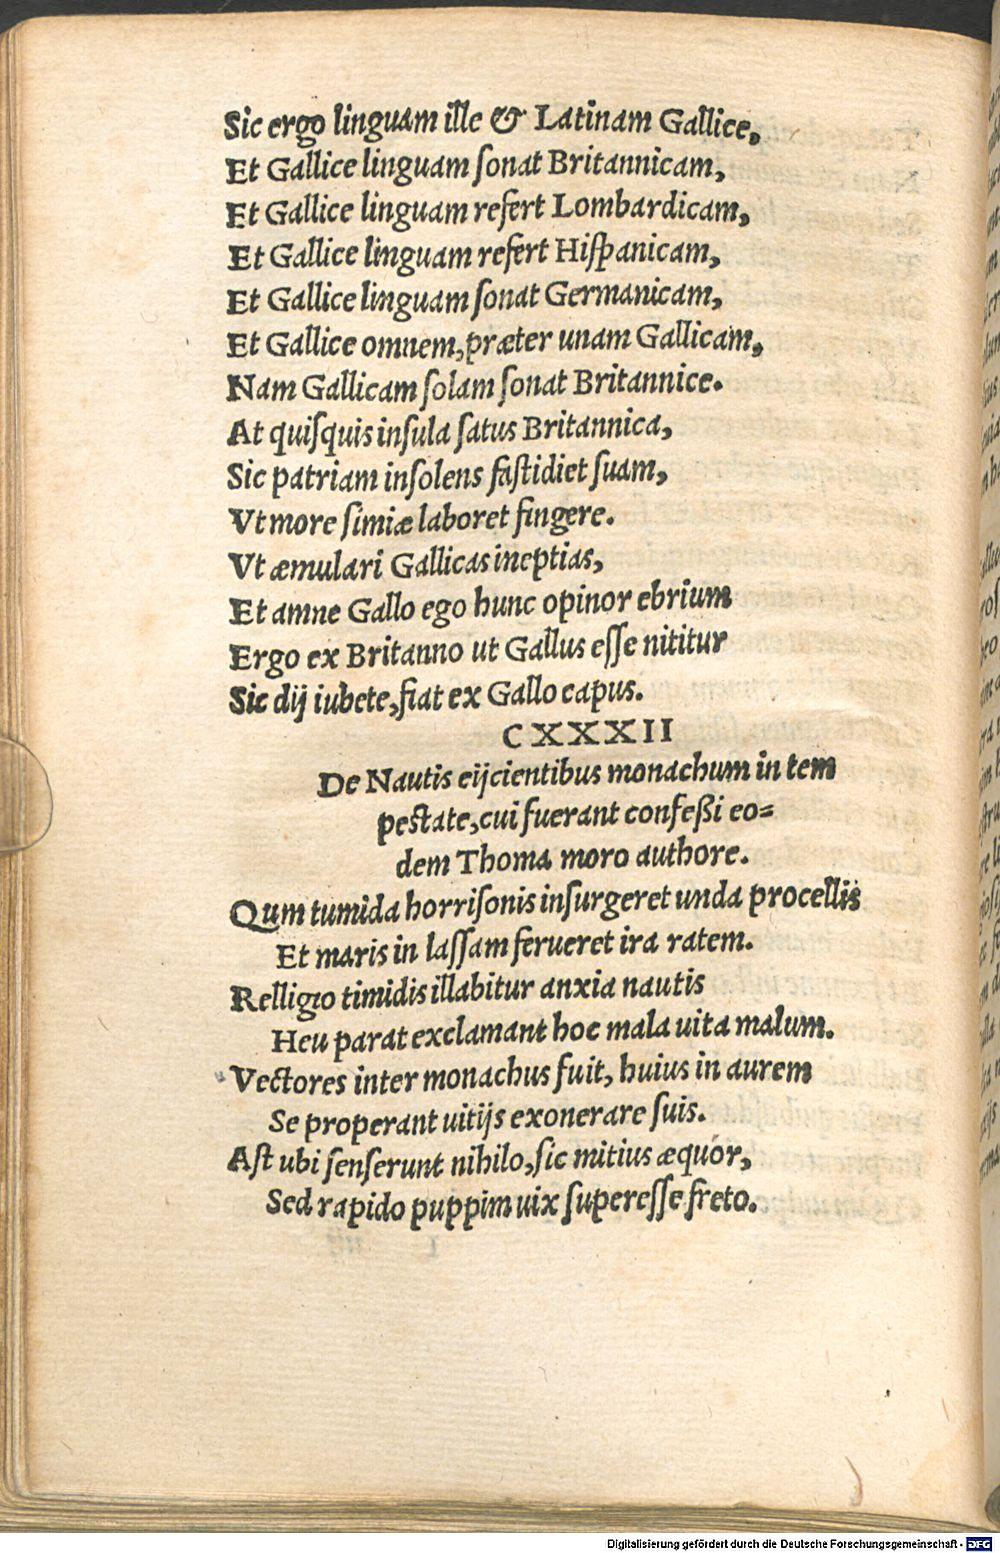 Sic ergo linguam ille & Latinam Gallice,
Et Gallice linguam ſonat Britannicam,
Et Gallice linguam refert Lombardicam,
Et Gallice linguam refert Hiſpanicam,
Et Gallice linguam ſonat Germanicam,
Et Gallice omnem, præter unam Gallicam,
Nam Gallicam ſolam ſonat Britannice.
At quiſquis inſula ſatus Britannica,
Sic patriam inſolens faſtidiet ſuam,
Vt more ſimiæ laboret fingere.
Vt æmulari Gallicas ineptias,
Et amne Gallo ego hunc opinor ebrium
Ergo ex Britanno ut Gallus eſſe nititur
Sic dij iubete, fiat ex Gallo capus.
CXXXII
De Nautis eijcientibus monachum in tem
peſtate, cui fuerant confeßi eo=
dem Thoma moro authore.
Qum tumida horriſonis inſurgeret unda procellis
Et maris in laſſam ferueret ira ratem.
Relligio timidis illabitur anxia nautis
Heu parat exclamant hoc mala uita malum.
Vectores inter monachus fuit, huius in aurem
Se properant uitijs exonerare ſuis.
Aſt ubi ſenſerunt nihilo, ſic mitius æquór,
Sed rapido puppim uix ſupereſſe freto.
Digitalisierung gefördert durch die Deutsche Forschungsgemeinschaft - DFG